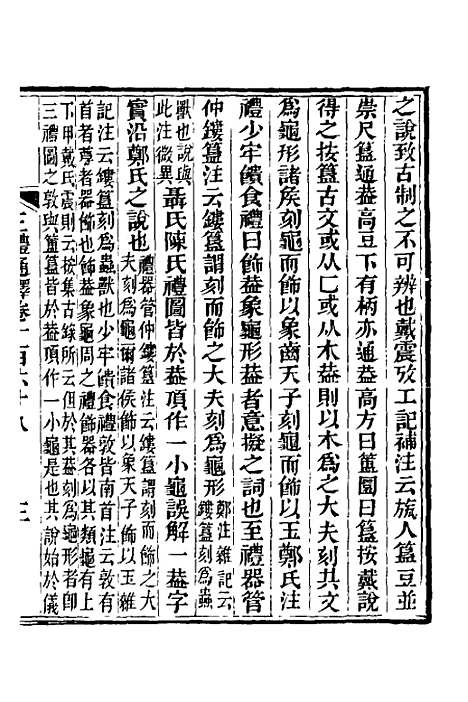 之說致古制之不可辨也戴震攷工記補注云旊人簋豆並
崇尺簋通葢高豆下有柄亦通葢高方曰簠圓曰簋按戴說
得之按簋古文或从匚或从木葢則以木爲之大夫刻其文
爲龜形諸矦刻龜而飾以象齒天子刻龜而飾以玉鄭氏注
禮少牢饋食禮曰飾葢象龜形葢者意擬之詞也至禮器管
仲鏤簋注云鏤簋謂刻而飾之大夫刻爲龜形鄭注雜記云鏤簋刻爲蟲
獸也說與此注微異聶氏陳氏禮圖皆於葢頂作一小龜誤解一葢字
實沿鄭氏之說也禮器管仲鏤簋注云鏤簋謂刻而飾之大夫刻爲龜爾諸侯飾以象天子飾以玉雜
記注云鏤簋刻爲蟲獸也少牢饋食禮敦皆南首注云敦有首者尊者器飾也飾葢象龜周之禮飾器各以其類龜有上
下甲戴氏震則云按集古錄所云但於其葢刻爲龜形者卽三禮圖之敦與簠簋葢頂作一小龜是也其說始於儀
三禮通釋卷一百六十八 三